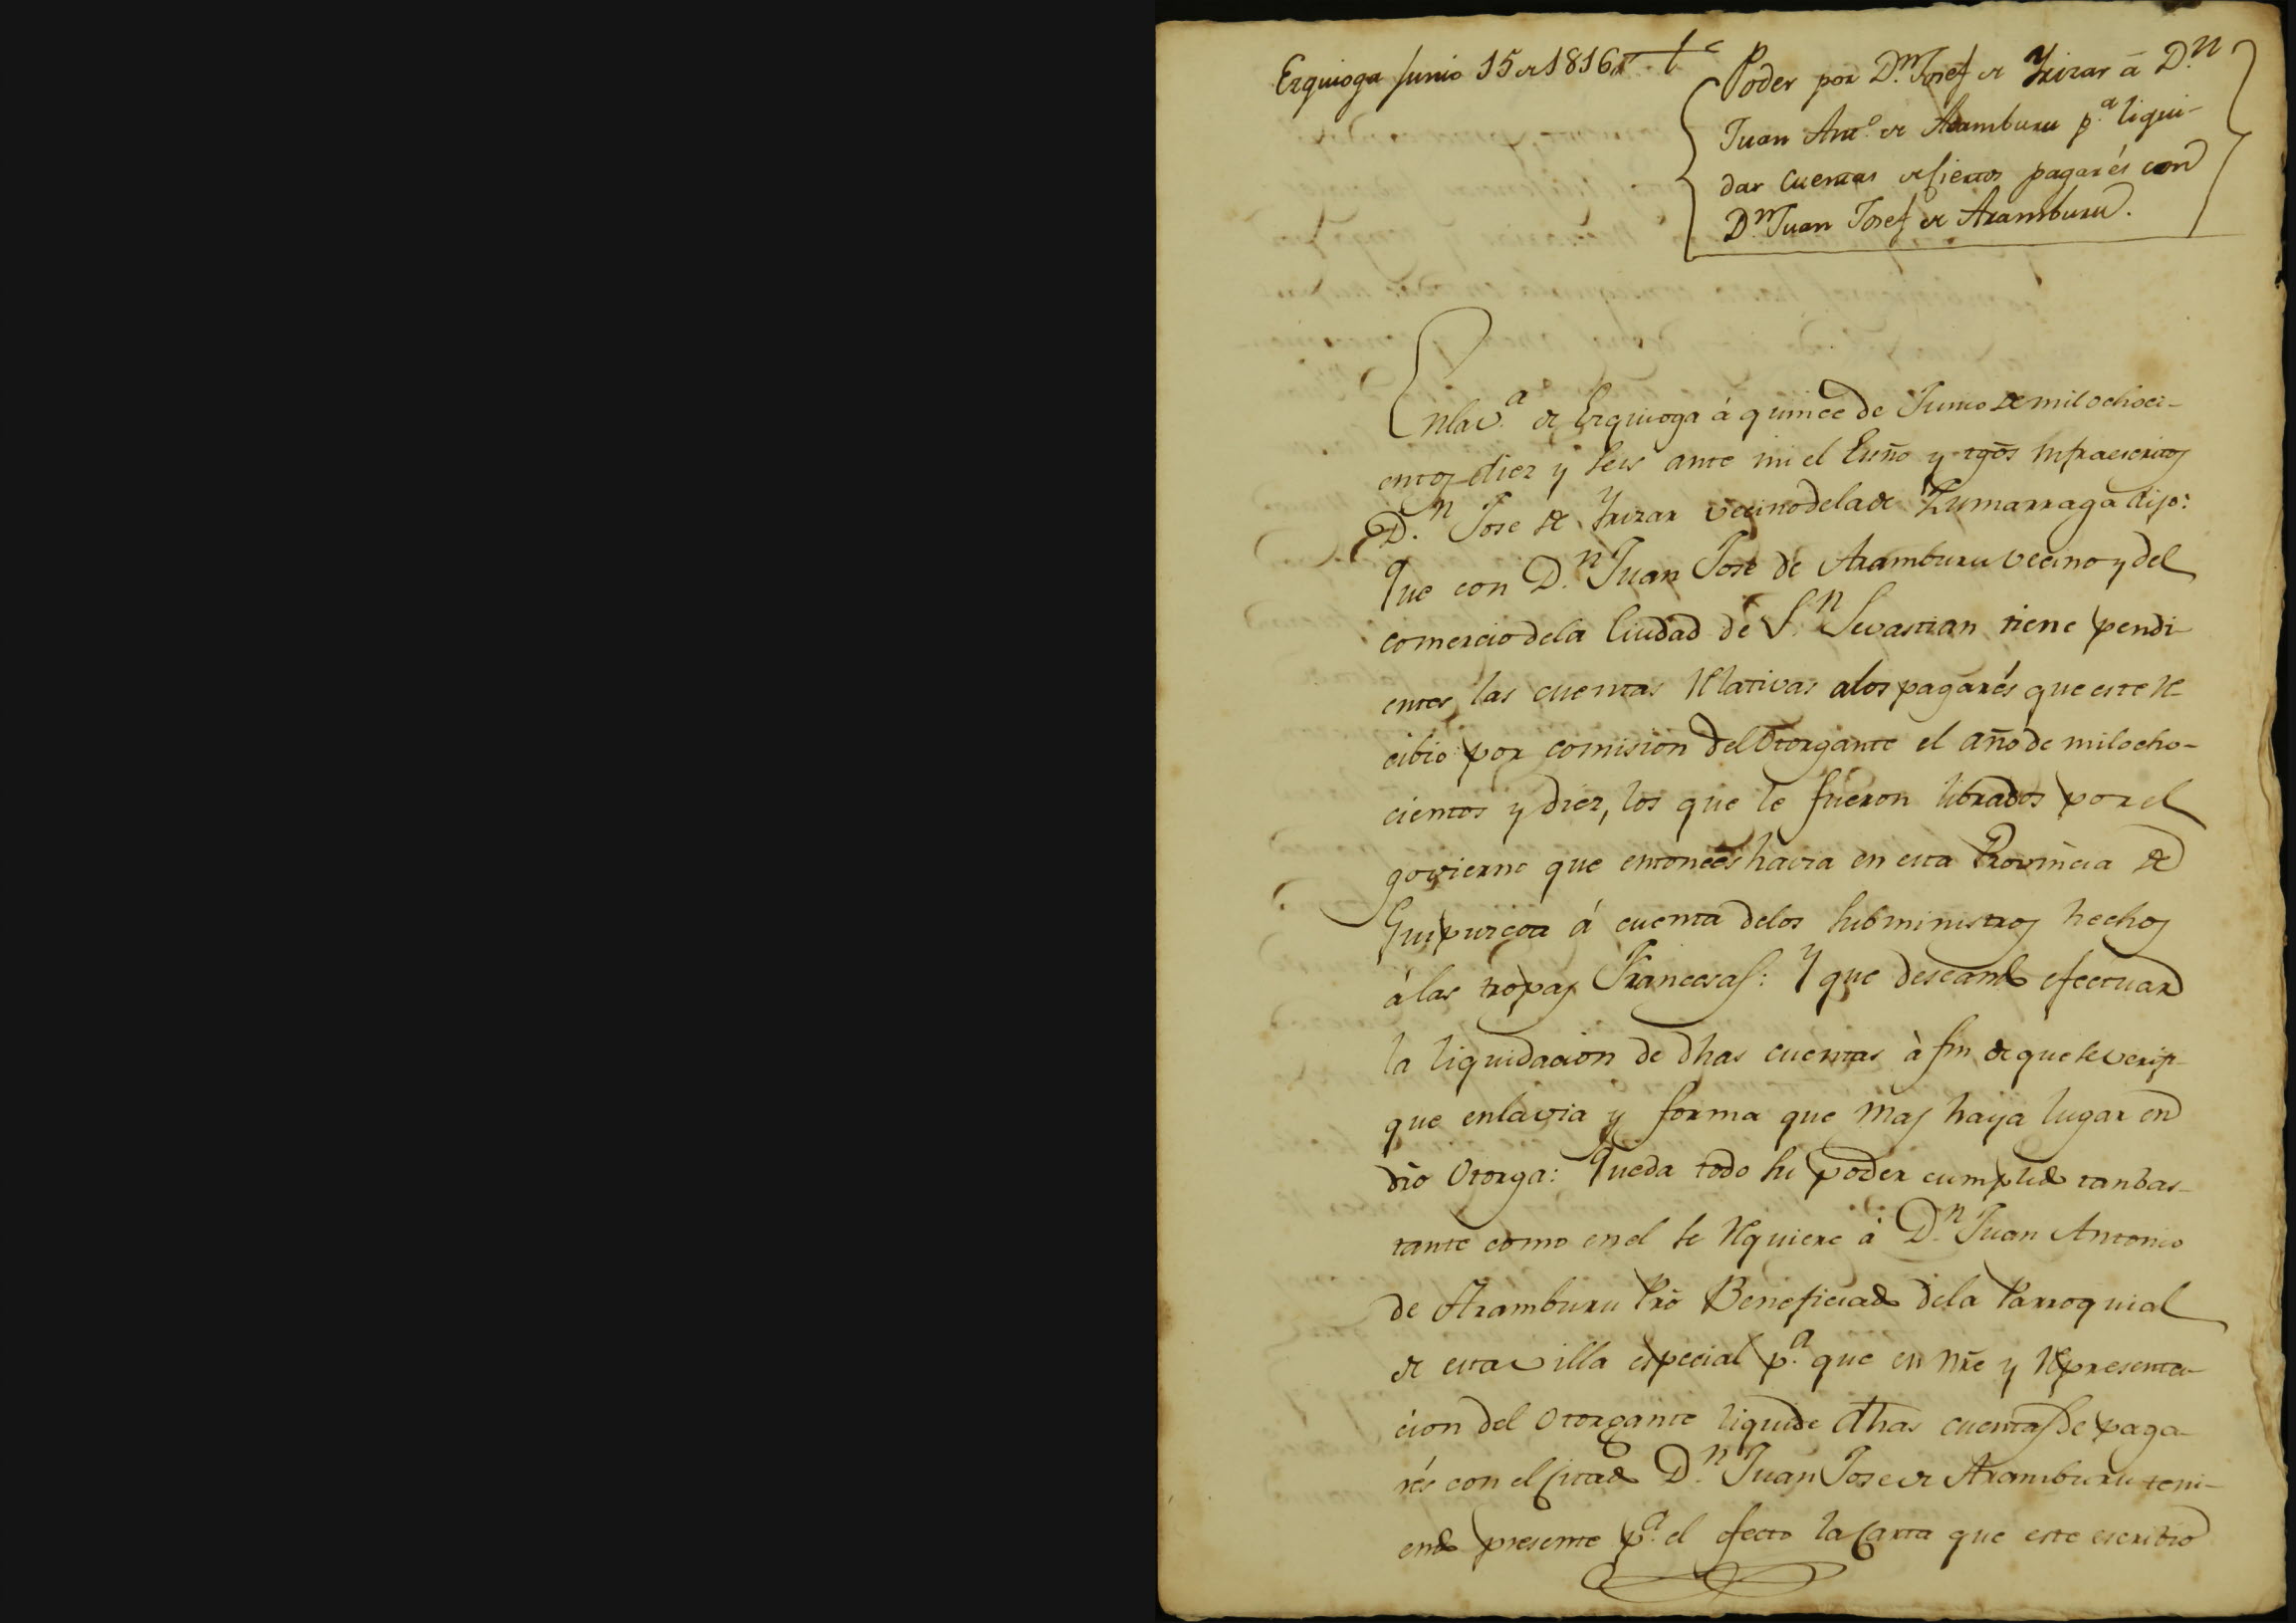 Ezquioga Junio 15 de 1816
Poder por D.n Josef de Yrizar á D.n
Juan Ant.o de Aramburu p.a liqui-
dar cuentas de ciertos pagarés con
D.n Juan Josef de Aramburu.
En la v.a de Ezquioga á quince de Junio de mil ochoci-
entos diez y seis ante mi el Essño y tgos infraescritos
D.n Jose de Yrizar vecino de la de Zumarraga dijo:
Que con D.n Juan Jose de Aramburu vecino y del
comercio de la Ciudad de S.n Sevastian tiene pendi-
entes las cuentas relativas a los pagarés que este re-
cibio por comision del Otorgante el año de mil ocho-
cientos y diez, los que le fueron librados por el
govierno que entonces havia en esta Provincia de
Guipuzcoa á cuenta de los subministros hechos
á las tropas Francesas: Y que deseando efectuar
la liquidacion de dhas cuentas à fin de que se verifi-
que en la via y forma que mas haya lugar en
dro Otorga: Que da todo su poder cumplido tan bas-
tante como en el se requiere á D.n Juan Antonio
de Aramburu Pro Beneficiado de la Parroquial
de esta villa especial p.a que en nre y representa-
cion del Otorgante liquide dhas cuentas de paga-
rés con el citado D.n Juan Jose de Aramburu teni-
endo presente p.a el efecto la Carta que este escribio